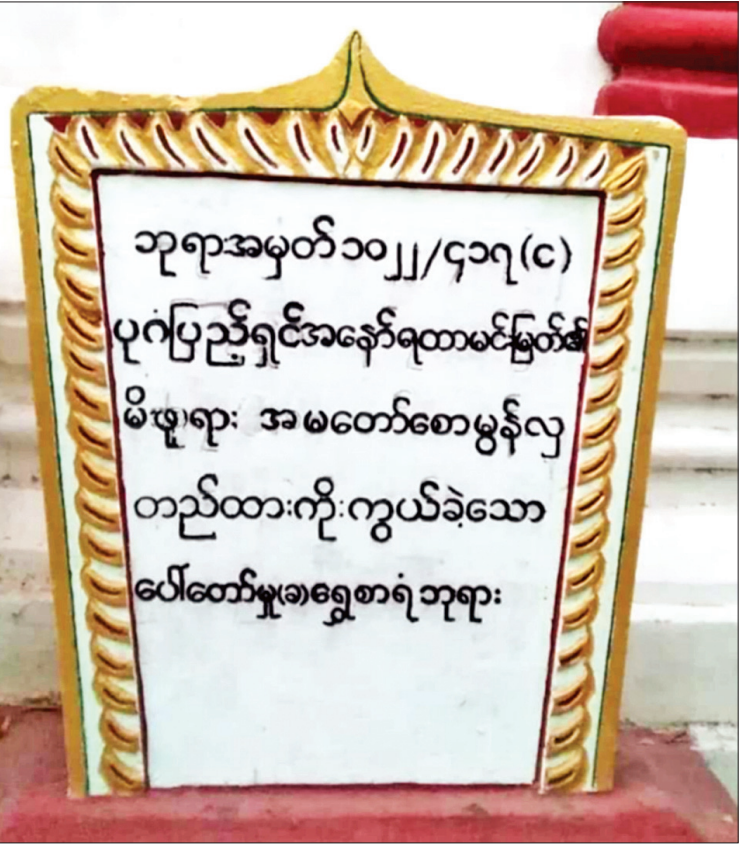 ဘုရာအမှတ်၁၀၂၂/၄၁၇(င)
ပုဂံပြည့်ရှင်အနော်ရထာမင်းမြတ်၏
မိဖုရား အမတော်စောမွန်လှ
တည်ထားကိုးကွယ်ခဲ့သော
ပေါ်တော်မှု(ခ)ရွှေစာရံဘုရား